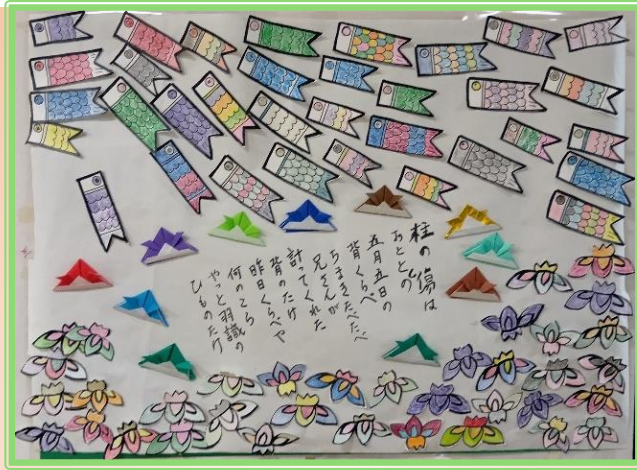 柱の傷は
おととしの
五月五日の
背くらべ
ちまきたべたべ
兄さんが
計ってくれた
背のたけ
昨日くらべや
何のこら
やっと羽識の
ひものたけ